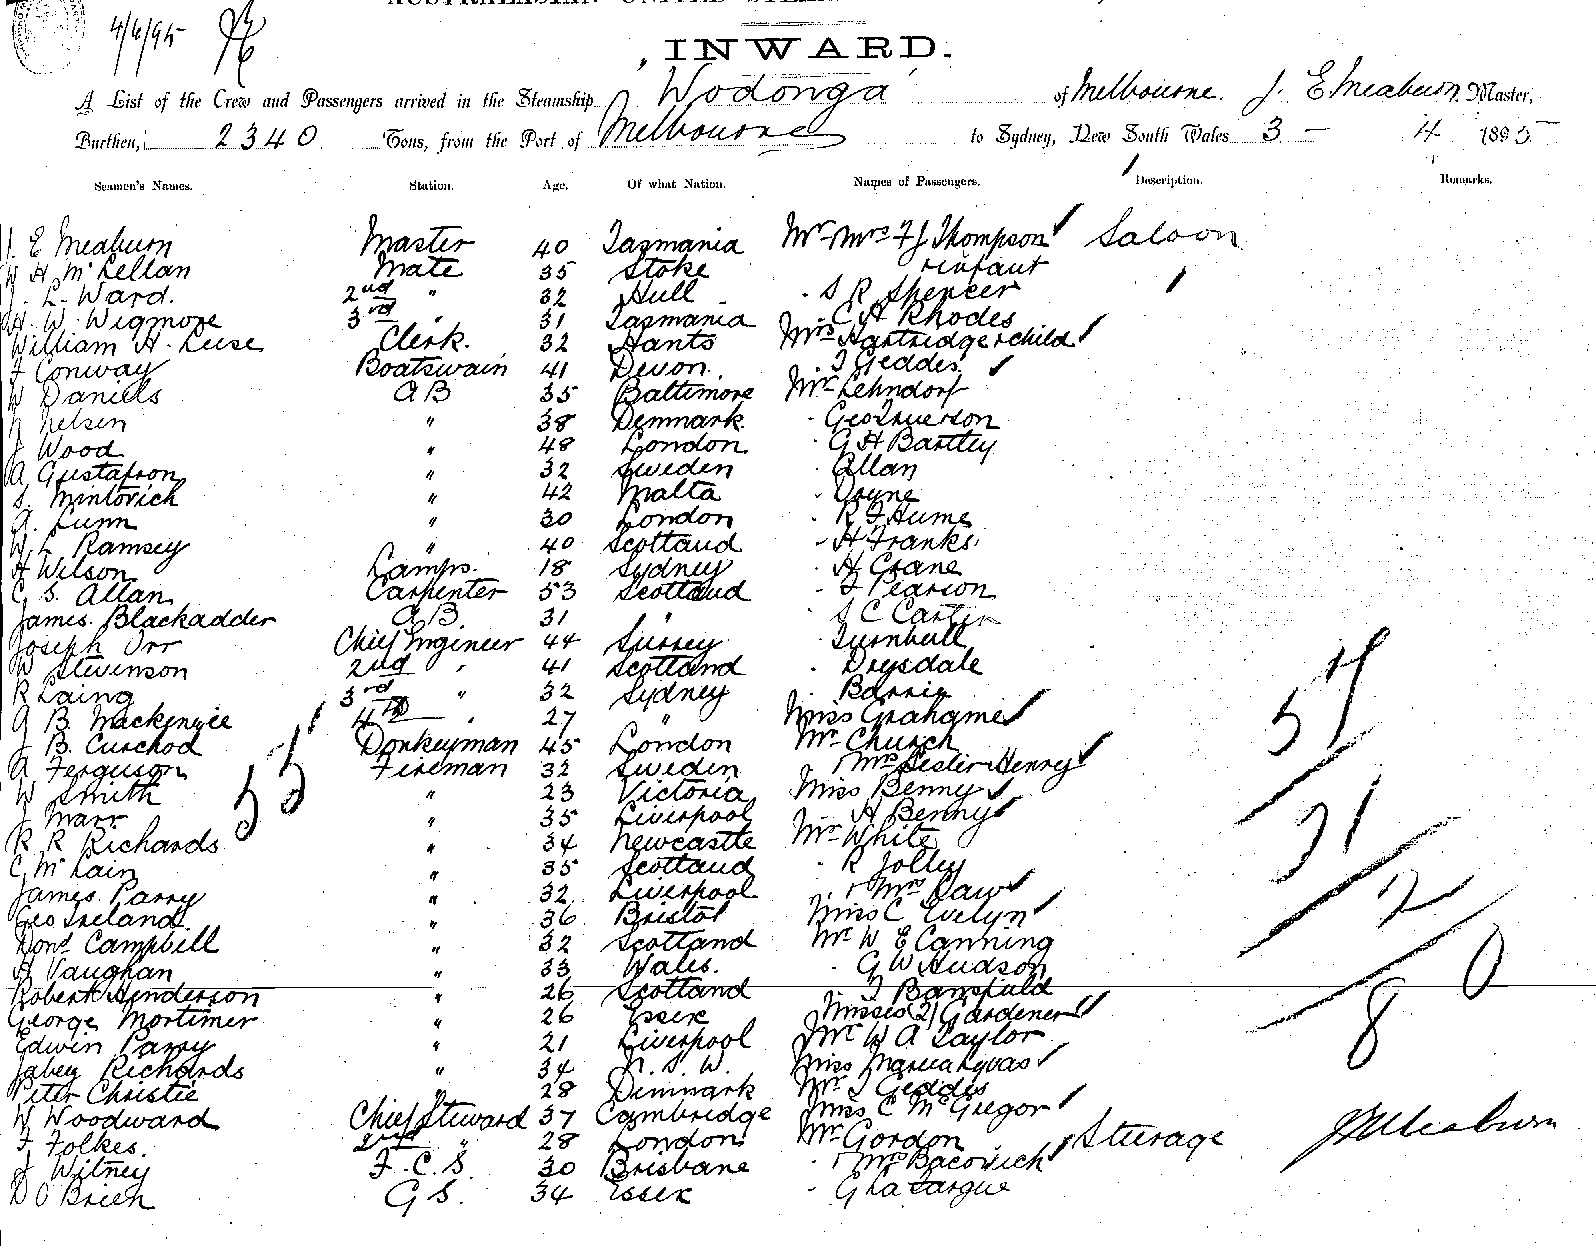 4/6/95
INWARD.
A List of the Crew and Passengers arrived in the Steamship Wodonga of Melbourne. J. E Meaburn Master,
Burthen, 2340 Tons, from the Port of Melbourne to Sydney, New South Wales 3 - 4 1895
Seamen's Names. Station. Age. Of what Nation. Names of Passengers. Description. Remarks.
J. E Meaburn Master 40 Tasmania Mr Mrs F J Thompson Saloon
W H McLellan Mate 35 Stoke + infant
J. L. Ward. 2nd " 32 Hull - S R Spencer
H. W. Wigmore 3rd " 31 Tasmania - C H Rhodes
William H. Luse Clerk. 32 Hants Mrs Hartridge + child
F Conway Boatswain 41 Devon. - J Geddes
W Daniels AB 35 Baltimore Mr Lehndorf
N Nelsen " 38 Denmark - Geo Iverson
J Wood " 48 London - G H Bartley
A Gustafson " 32 Sweden - Allan
S. Mintovich " 42 Malta - Coyne
A. Lunn " 30 London - R F Hume
W L Ramsey " 40 Scotland - H Franks
H Wilson Lamps. 18 Sydney - H Crane
C S. Allan Carpenter 53 Scotland - F Pearson
James Blackadder AB. 31 " - S C Carter
Joseph Orr Chief Engineer 44 Surrey - Turnbull
W Stevenson 2nd " 41 Scotland - Drysdale
R Laing 3rd " 32 Sydney - Barrie
A B. Mackenzie 4th " 27 " Miss Grahame
J B. Curchod Donkeyman 45 London Mr Church
A Ferguson Fireman 32 Sweden + Mrs Lester Henry
W Smith " 23 Victoria Miss Benny
J Marr " 35 Liverpool - A Benny
R R Richards " 34 Newcastle Mr White
C McLain " 35 Scotland - R Jolley
James Parry " 32 Liverpool - + Mrs Law
Geo Ireland " 36 Bristol Miss C Evelyn
Dond Campbell " 32 Scotland Mr W E Canning
H Vaughan " 33 Wales. - G W Hudson
Robert Henderson " 26 Scotland - J Bamfield
George Mortimer " 26 Essex Misses (2) Gardener
Edwin Parry " 21 Liverpool Mr W A Taylor
Jabez Richards " 34 N. S. W. Miss Maria Ryvas
Peter Christie " 28 Denmark Mr J Geddes
W Woodward Chief Steward 37 Cambridge Miss C McGregor
F Folkes. 2nd " 28 London Mr Gordon Sturage
J Witney F. C. S. 30 Brisbane - + Mrs Bacovich
D O'Brien G S. 34 Essex - G La Fargue
55
57
31
12
80
J E Meaburn